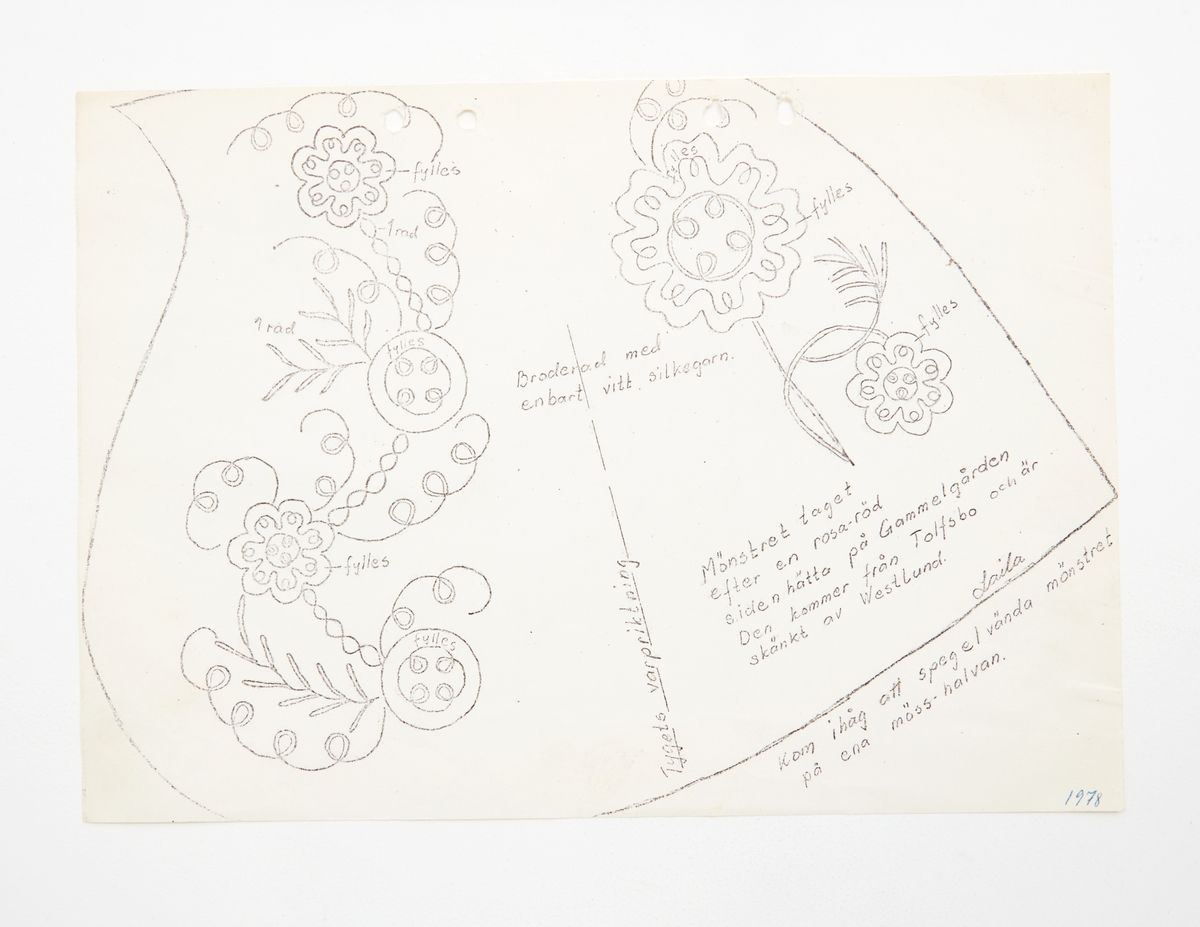 fylles
1 rad
1 rad
fylles
fylles
fylles
fylles
fylles
fylles
Broderad med
enbart vitt silkegarn.
Tygets varpriktning
Mönstret taget
efter en rosa-röd
siden hätta på Gammelgården
Den kommer från Tolfsbo och är
skänkt av Westlund.
Laila
Kom ihåg att spegel vända mönstret
på ena möss-halvan.
1978